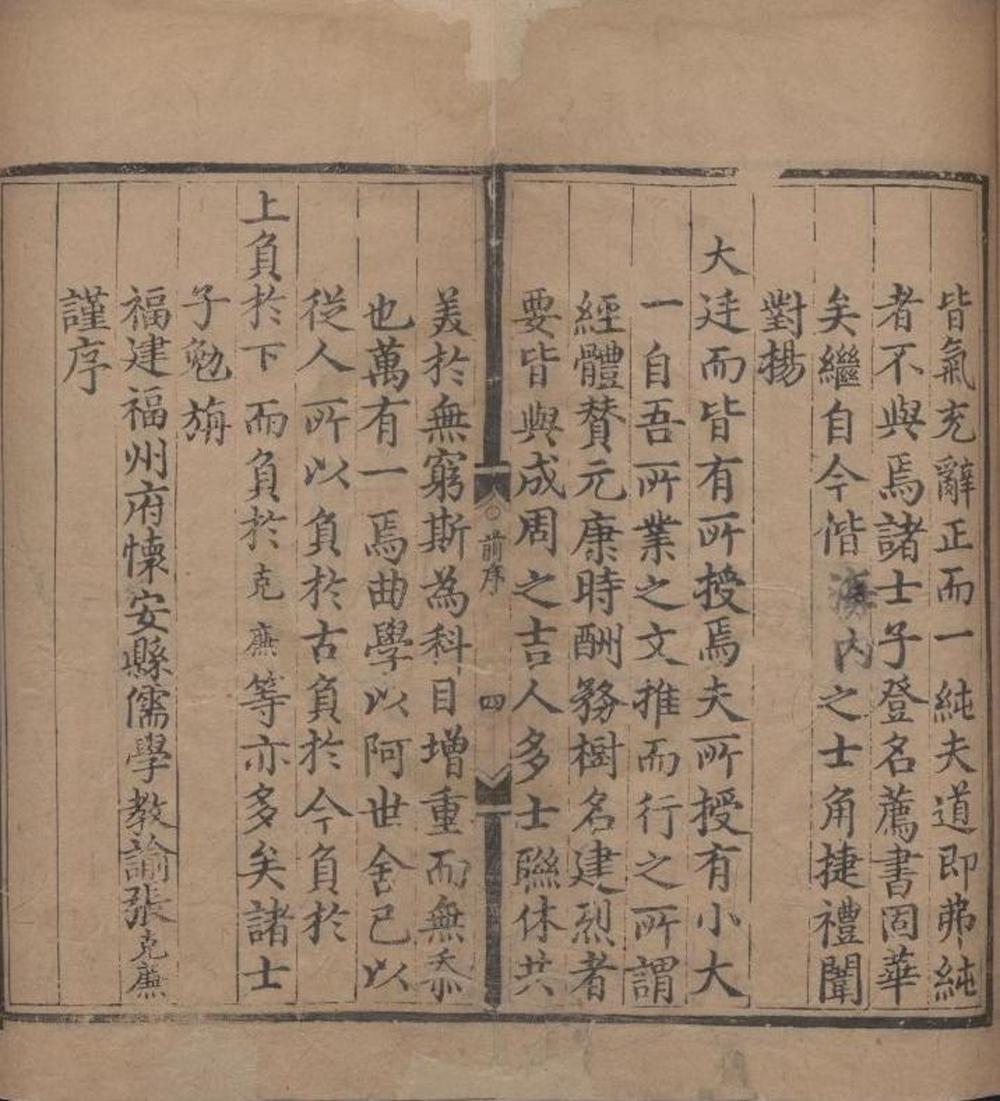 皆氣充辭正而一純夫道即弗純
者不與焉諸士子登名薦書固華
矣繼自今偕海內之士角捷禮闈
對揚
大廷而皆有所授焉夫所授有小大
一自吾所業之文推而行之所謂
經體賛元康時酬務樹名建烈者
要皆與成周之吉人多士聯休共
前序
四
美於無窮斯為科目增重而無忝
也萬有一焉曲學以阿世舍已以
從人所以負於古負於今負於
上負於下而負於克廉等亦多矣諸士
子勉旃
福建福州府懷安縣儒學教諭張克廉
謹序